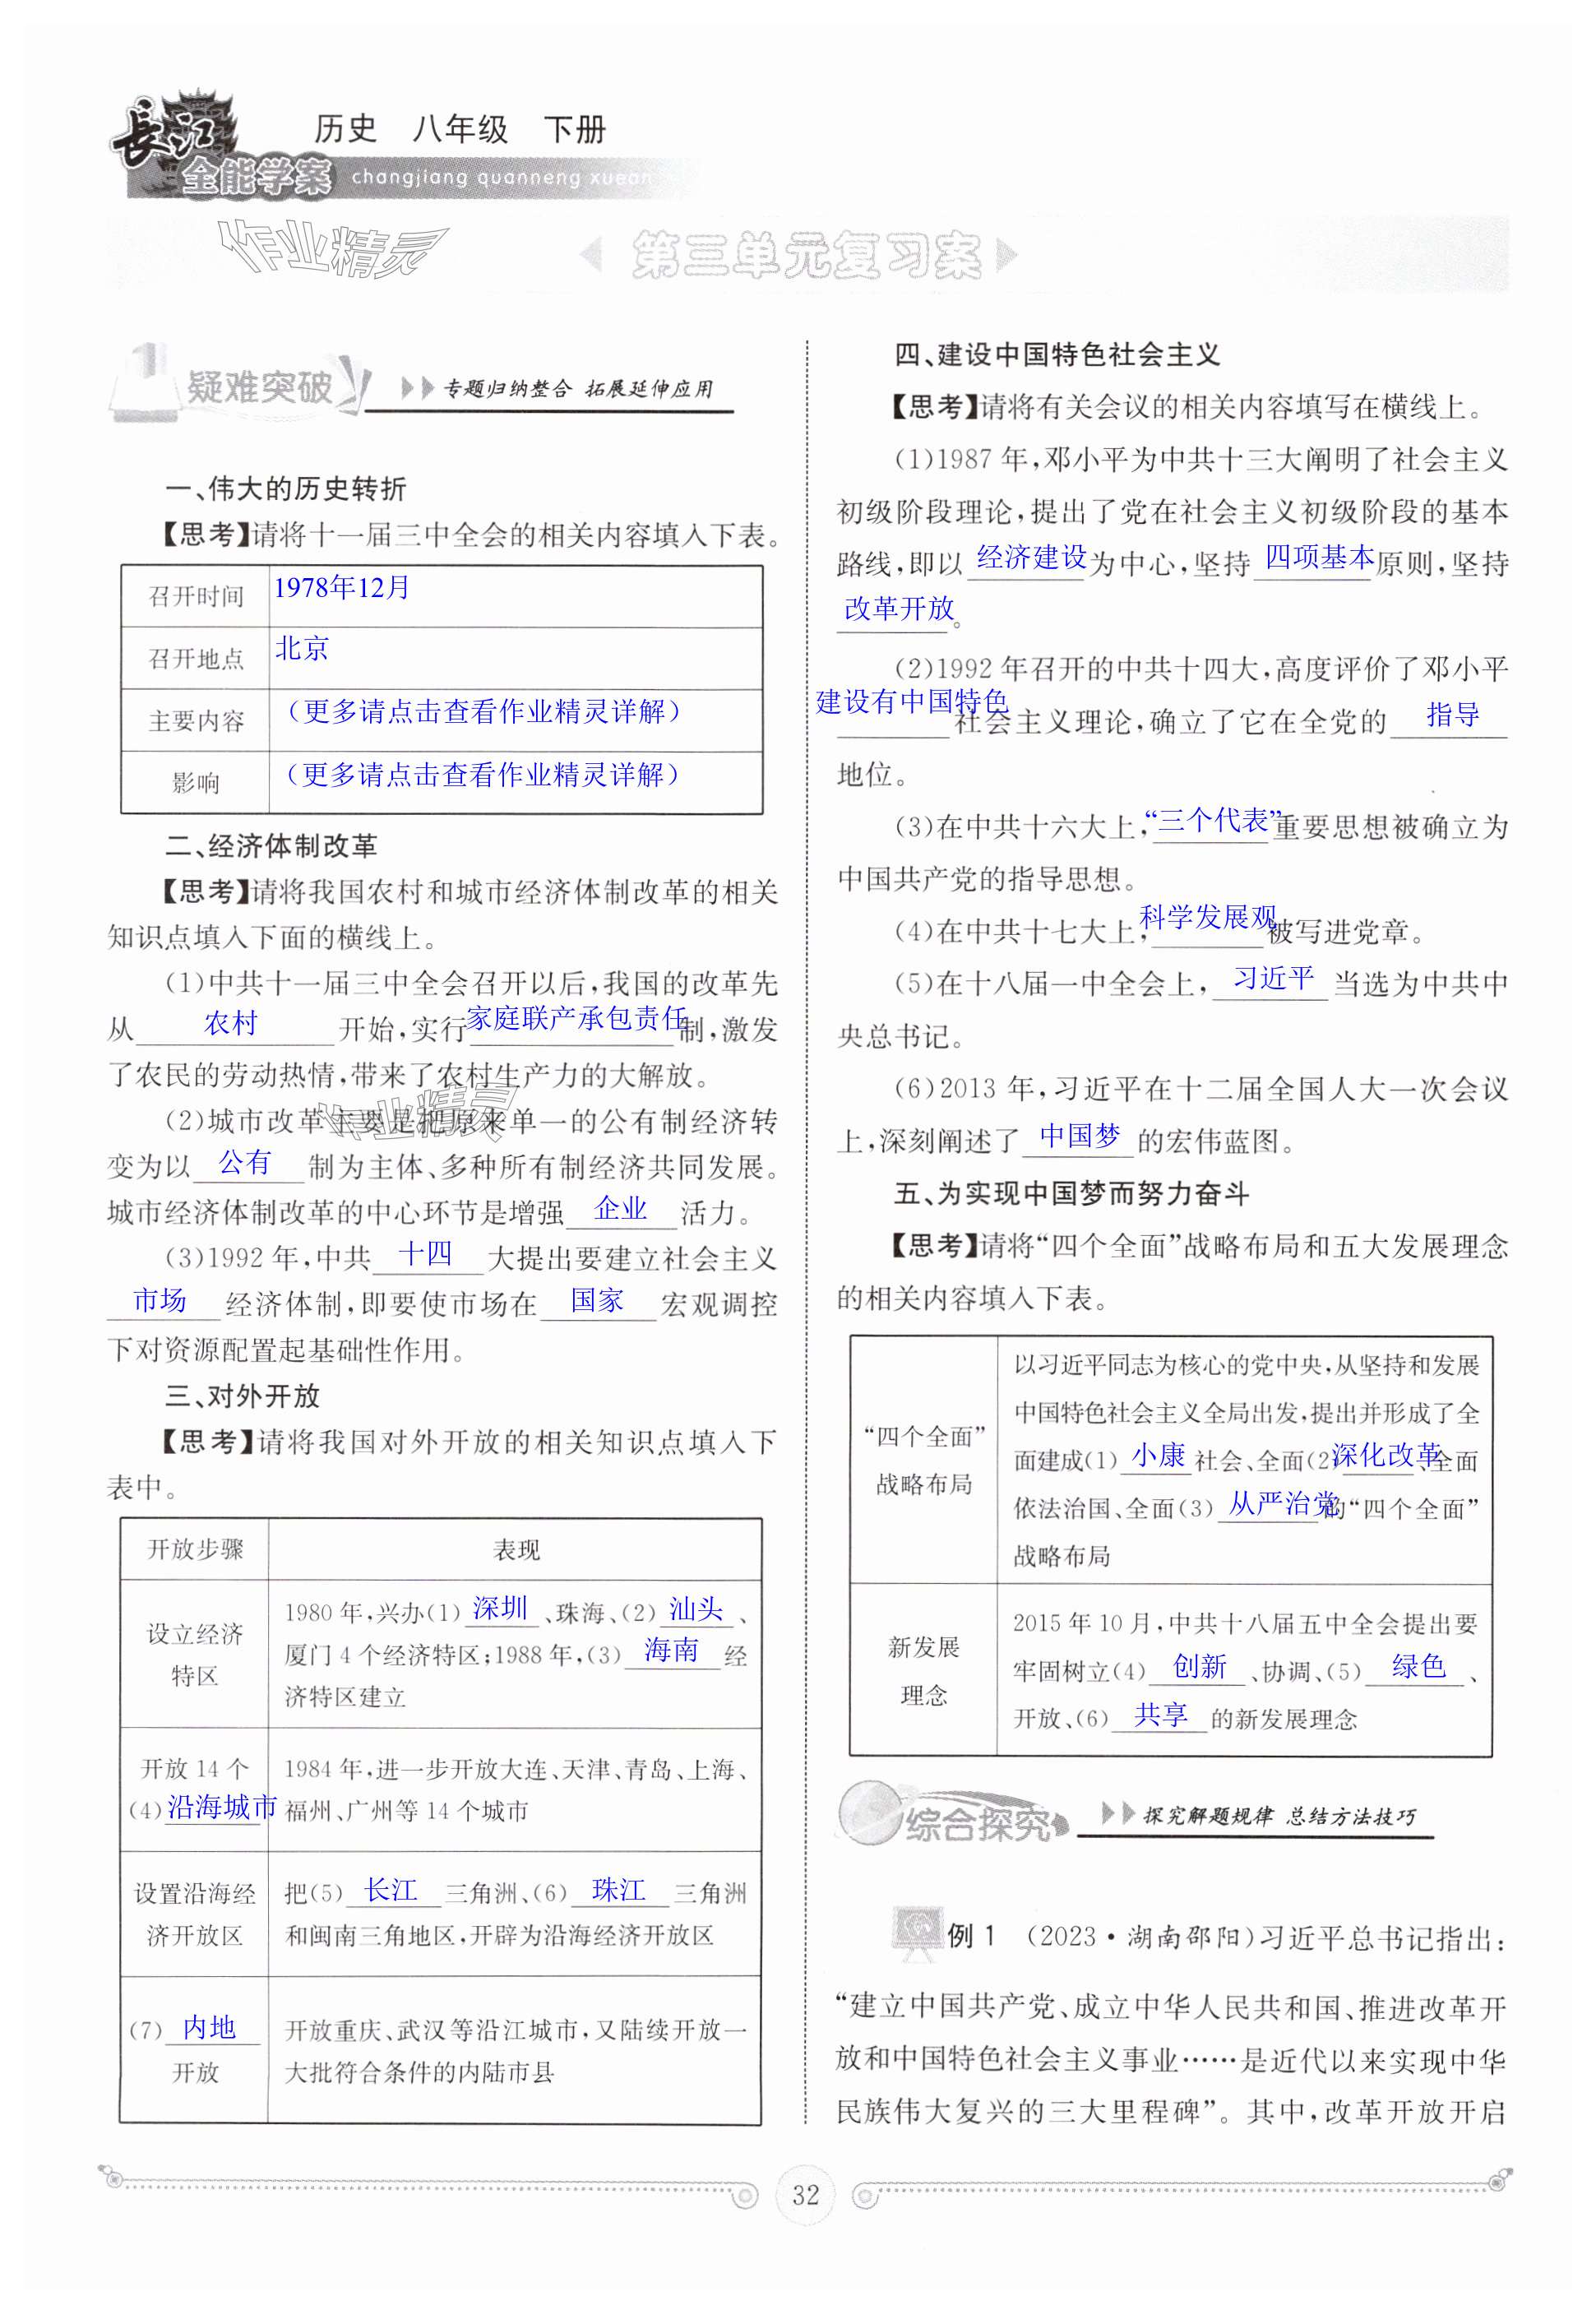 長江
全能学案
历史 八年级 下册
changjiang quanneng xuean
作业精灵
第三单元复习案
疑难突破 专题归纳整合 拓展延伸应用
一、伟大的历史转折
【思考】请将十一届三中全会的相关内容填入下表。
召开时间 1978年12月
召开地点 北京
主要内容 （更多请点击查看作业精灵详解）
影响 （更多请点击查看作业精灵详解）
二、经济体制改革
【思考】请将我国农村和城市经济体制改革的相关
知识点填入下面的横线上。
(1)中共十一届三中全会召开以后,我国的改革先
从 农村 开始,实行家庭联产承包责任制,激发
了农民的劳动热情,带来了农村生产力的大解放。
作业精灵
(2)城市改革主要是把原来单一的公有制经济转
变为以 公有 制为主体、多种所有制经济共同发展。
城市经济体制改革的中心环节是增强 企业 活力。
(3)1992 年,中共 十四 大提出要建立社会主义
市场 经济体制,即要使市场在 国家 宏观调控
下对资源配置起基础性作用。
三、对外开放
【思考】请将我国对外开放的相关知识点填入下
表中。
开放步骤 表现
设立经济
特区
1980 年,兴办(1) 深圳 、珠海、(2) 汕头 、
厦门 4 个经济特区;1988 年,(3) 海南 经
济特区建立
开放 14 个
(4) 沿海城市
1984 年,进一步开放大连、天津、青岛、上海、
福州、广州等 14 个城市
设置沿海经
济开放区
把(5) 长江 三角洲、(6) 珠江 三角洲
和闽南三角地区,开辟为沿海经济开放区
(7) 内地
开放
开放重庆、武汉等沿江城市,又陆续开放一
大批符合条件的内陆市县
四、建设中国特色社会主义
【思考】请将有关会议的相关内容填写在横线上。
(1)1987 年,邓小平为中共十三大阐明了社会主义
初级阶段理论,提出了党在社会主义初级阶段的基本
路线,即以 经济建设 为中心,坚持 四项基本 原则,坚持
改革开放 。
(2)1992 年召开的中共十四大,高度评价了邓小平
建设有中国特色 社会主义理论,确立了它在全党的 指导
地位。
(3)在中共十六大上,“三个代表”重要思想被确立为
中国共产党的指导思想。
(4)在中共十七大上,科学发展观被写进党章。
(5)在十八届一中全会上, 习近平 当选为中共中
央总书记。
(6)2013 年,习近平在十二届全国人大一次会议
上,深刻阐述了 中国梦 的宏伟蓝图。
五、为实现中国梦而努力奋斗
【思考】请将“四个全面”战略布局和五大发展理念
的相关内容填入下表。
“四个全面”
战略布局
以习近平同志为核心的党中央,从坚持和发展
中国特色社会主义全局出发,提出并形成了全
面建成(1) 小康 社会、全面(2)深化改革、全面
依法治国、全面(3) 从严治党的“四个全面”
战略布局
新发展
理念
2015 年 10 月,中共十八届五中全会提出要
牢固树立(4) 创新 、协调、(5) 绿色 、
开放、(6) 共享 的新发展理念
综合探究 探究解题规律 总结方法技巧
例 1 (2023·湖南邵阳)习近平总书记指出:
“建立中国共产党、成立中华人民共和国、推进改革开
放和中国特色社会主义事业……是近代以来实现中华
民族伟大复兴的三大里程碑”。其中,改革开放开启
32